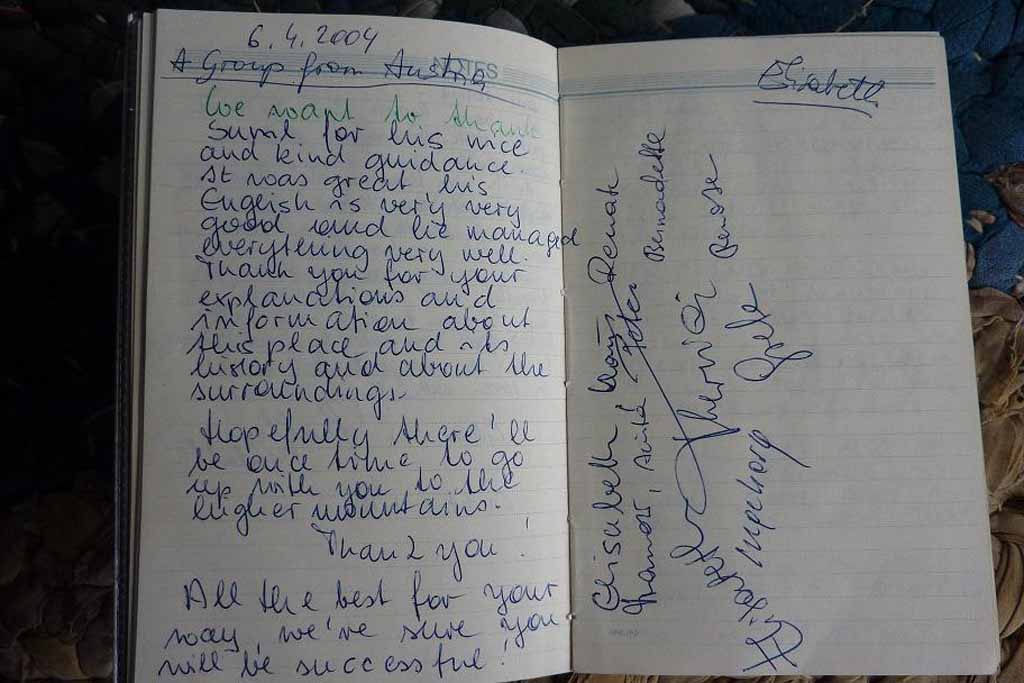 6.4.2004
NOTES
A Group from Austria
We want to thank
Sunil for his nice
and kind guidance.
It was great his
English is very very
good and he managed
everything very well.
Thank you for your
explanations and
information about
this place and its
history and about the
surroundings.
Hopefully there'll
be once time to go
up with you to the
higher mountains.
Thank you!
All the best for your
way, we're sure you
will be successful!
Elisabeth
Elisabeth Renate
Thomas, Anita Peter Bernadette